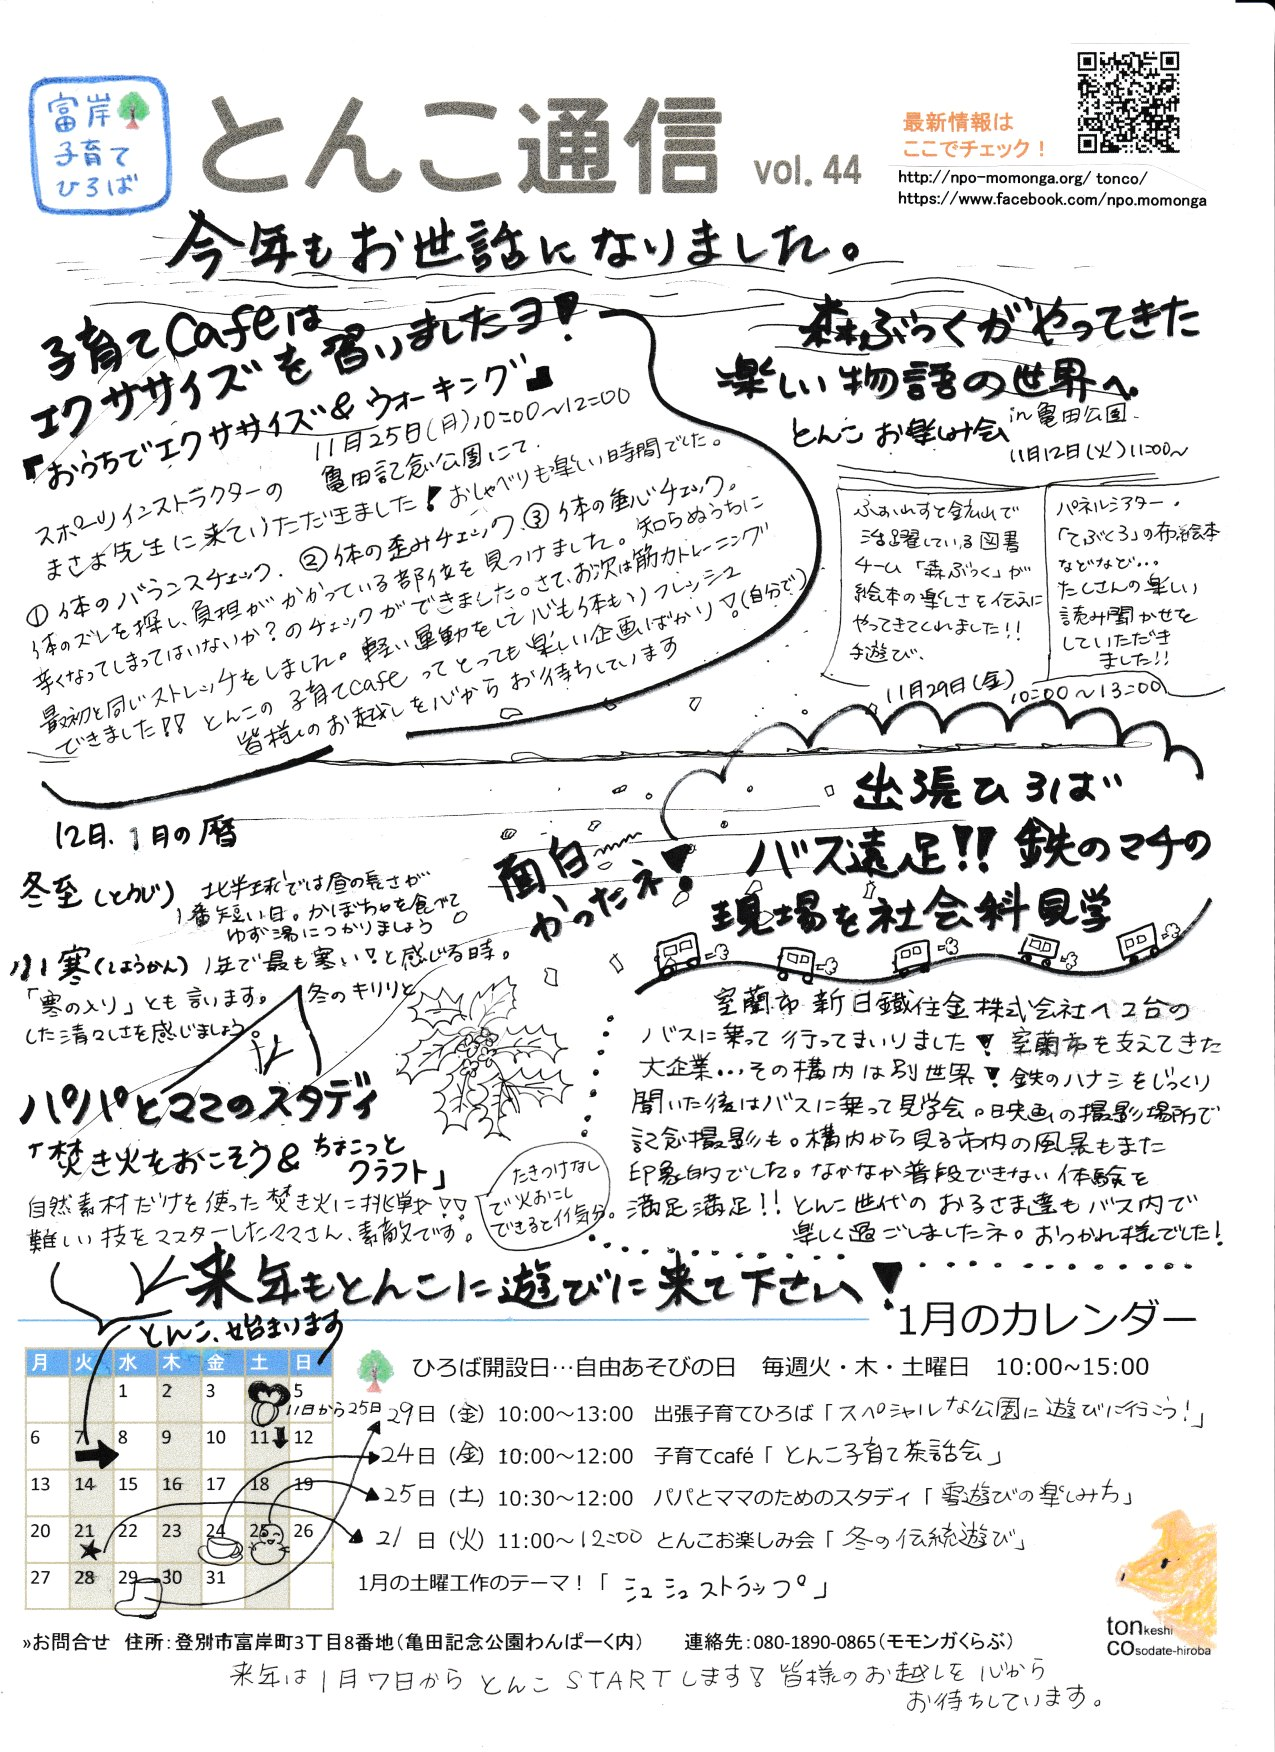 富岸
子育て
ひろば
とんこ通信 vol. 44
最新情報は
ここでチェック！
http://npo-momonga.org/ tonco/
https://www.facebook.com/npo.momonga
今年もお世話になりました。
子育てCafeは
エクササイズを習いましたヨ!
『おうちでエクササイズ&ウォーキング』
11月25日(月)10:00〜12:00
亀田記念公園にて.
スポーツインストラクターの
まさよ先生に来ていただきました!おしゃべりも楽しい時間でした。
①体のバランスチェック. ②体の歪みチェック、③体の重心チェック。
体のズレを探し、負担がかかっている部位を見つけました。知らぬうちに
辛くなってしまってはいないか?のチェックができました。さて、お次は筋力トレーニング
最初と同じストレッチをしました。軽い運動をして心も体もリフレッシュ
できました!! とんこの子育てcafeってとっても楽しい企画ばかり!(自分で)
皆様のお越しを心からお待ちしています
森ぶっくがやってきた
楽しい物語の世界へ.
とんこ お楽しみ会 in亀田公園.
11月12日(火)11:00〜
ふぉれすと鉱山で
活躍している図書
チーム「森ぶっく」が
絵本の楽しさを伝えに
やってきてくれました!!
手遊び、
パネルシアター.
「てぶくろ」の布絵本
などなど…
たくさんの楽しい
読み聞かせを
していただき
ました!!
11月29日(金) 10:00〜13:00
出張ひろば
バス遠足!! 鉄のマチの
現場を社会科見学
面白
かったネ!
室蘭市新日鐵住金株式会社へ2台の
バスに乗って行ってまいりました! 室蘭市を支えてきた
大企業…その構内は別世界! 鉄のハナシをじっくり
聞いた後はバスに乗って見学会。映画の撮影場所で
記念撮影も。構内から見る市内の風景もまた
印象的でした。なかなか普段できない体験を
満足満足!! とんこ世代のお子さま達もバス内で
楽しく過ごしましたネ。おつかれ様でした!
12月、1月の暦
冬至(とうじ) 北半球では昼の長さが
1番短い日。かぼちゃを食べて
ゆず湯につかりましょう
小寒(しょうかん) 1年で最も寒い!と感じる時。
「寒の入り」とも言います。冬のキリリと
した清々しさを感じましょう。
パパとママのスタディ
「焚き火をおこそう& ちょこっと
クラフト」
自然素材だけを使った焚き火に挑戦!!
難しい技をマスターしたママさん、素敵です。
たきつけなし
で火おこし
できるとイイ気分。
来年もとんこに遊びに来て下さい!
とんこ、始まります
1月のカレンダー
月 火 水 木 金 土 日
1 2 3 5
6 7 8 9 10 11 12
13 14 15 16 17 18 19
20 21 22 23 24 25 26
27 28 29 30 31
11日から25日
ひろば開設日…自由あそびの日 毎週火・木・土曜日 10:00~15:00
29日（金）10:00～13:00 出張子育てひろば「スペシャルな公園に遊びに行こう!」
24日（金）10:00～12:00 子育てcafé「とんこ子育て茶話会」
25日（土）10:30～12:00 パパとママのためのスタディ「雪遊びの楽しみち」
21日（火）11:00～12:00 とんこお楽しみ会「冬の伝統遊び」
1月の土曜工作のテーマ！「シュシュストラップ」
tonkeshi
COsodate-hiroba
»お問合せ 住所：登別市富岸町3丁目8番地（亀田記念公園わんぱーく内） 連絡先：080-1890-0865（モモンガくらぶ）
来年は1月7日からとんこSTARTします!皆様のお越しを心から
お待ちしています。